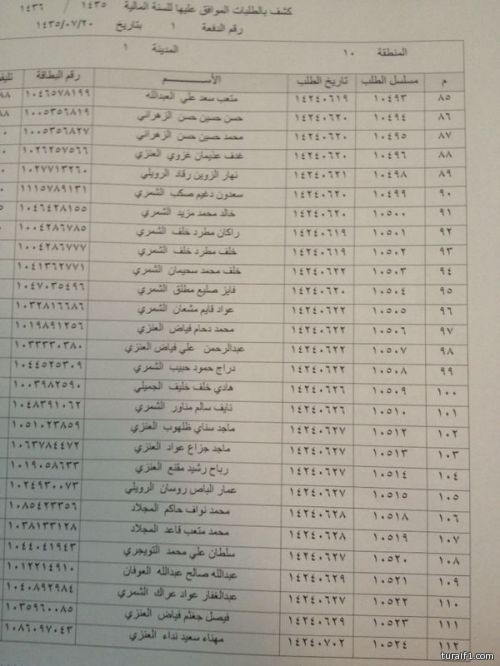 كشف بالطلبات الموافق عليها للسنة المالية ١٤٣٥ / ١٤٣٦
رقم الدفعة ١ بتاريخ ١٤٣٥/٠٧/٢٠
المنطقة ١٠ المدينة ١
م مسلسل الطلب تاريخ الطلب الأســـم رقم البطاقة
٨٥ ١٠٤٩٣ ١٤٢٤٠٦١٩ متعب سعد علي العبدالله ١٠٤٦٥٧٨١٩٩
٨٦ ١٠٤٩٤ ١٤٢٤٠٦٢٠ حسن حسين حسن الزهراني ١٠٠٥٣٥٦٨١٩
٨٧ ١٠٤٩٥ ١٤٢٤٠٦٢٠ محمد حسين حسن الزهراني ١٠٠٥٣٥٦٨٢٧
٨٨ ١٠٤٩٦ ١٤٢٤٠٦٢٠ غدف عذيمان غزوي العنزي ١٠٢٦٢٥٧٥٦٦
٨٩ ١٠٤٩٨ ١٤٢٤٠٦٢١ نهار الزوين رقاد الرويلي ١٠٢٧٧١٣٢٦٠
٩٠ ١٠٤٩٩ ١٤٢٤٠٦٢٠ سعدون دغيم صكب الشمري ١١١٥٧٨٩١٣١
٩١ ١٠٥٠٠ ١٤٢٤٠٦٢٠ خالد محمد مزيد الشمري ١٠٤٦٤٢٨١٥٥
٩٢ ١٠٥٠١ ١٤٢٤٠٦١٩ راكان مطرد خلف الشمري ١٠٠٤٢٨٦٧٨٥
٩٣ ١٠٥٠٢ ١٤٢٤٠٦١٩ خلف مطرد خلف الشمري ١٠٠٤٢٨٦٧٧٧
٩٤ ١٠٥٠٣ ١٤٢٤٠٦٢٢ خلف محمد سحيمان الشمري ١٠٤١٣٦٢٧٧١
٩٥ ١٠٥٠٤ ١٤٢٤٠٦٢٠ فايز صليع مطلق الشمري ١٠٤٧٠٣٥٤٩٦
٩٦ ١٠٥٠٥ ١٤٢٤٠٦٢٢ عواد قايم مشعان الشمري ١٠٣٢٨١٦٦٨٦
٩٧ ١٠٥٠٦ ١٤٢٤٠٦٢٢ محمد دحام فياض العنزي ١٠١٩٨٩١٢٥٦
٩٨ ١٠٥٠٧ ١٤٢٤٠٦٢٢ عبدالرحمن علي فياض العنزي ١٠٣٣٣٣٠٣٨٠
٩٩ ١٠٥٠٨ ١٤٢٤٠٦٢٢ دراج حمود حبيب الشمري ١٠٤٤٥٢٥٣٠٩
١٠٠ ١٠٥٠٩ ١٤٢٤٠٦٢٦ هادي خلف خليف الجميلي ١٠٠٣٩٨٢٥٩٠
١٠١ ١٠٥١٠ ١٤٢٤٠٦٢٦ نايف سالم مناور الشمري ١٠٤٨٣٩١٠٦٢
١٠٢ ١٠٥١٢ ١٤٢٤٠٦٢٧ ماجد سناي ظلهوب العنزي ١٠٥١٠٢٣٨٥٩
١٠٣ ١٠٥١٣ ١٤٢٤٠٦٢٧ ماجد جزاع عواد العنزي ١٠٦٣٧٨٤٤٧٢
١٠٤ ١٠٥١٤ ١٤٢٤٠٦٢٧ رباح رشيد مقنع العنزي ١٠١٩٠٥٨٦٣٣
١٠٥ ١٠٥١٥ ١٤٢٤٠٦٢٧ عمار الباص روسان الرويلي ١٠٢٤٩٣٠٠٧٣
١٠٦ ١٠٥١٨ ١٤٢٤٠٦٢٨ محمد نواف حاكم المجلاد ١٠٨٥٤٢٣٣٥٦
١٠٧ ١٠٥١٩ ١٤٢٤٠٦٢٨ محمد متعب قاعد المجلاد ١٠٣٨١٣٣١٢٨
١٠٨ ١٠٥٢٠ ١٤٢٤٠٦٢٧ سلطان علي محمد التويجري ١٠٤٤٠٤١٩٤٣
١٠٩ ١٠٥٢١ ١٤٢٤٠٦٢٩ عبدالله صالح عبدالله العوفان ١٠١٢٢١٤٩١٠
١١٠ ١٠٥٢٢ ١٤٢٤٠٦٢٧ عبدالغفار عواد عراك الشمري ١٠٤٠٨٩٢٩٨٤
١١١ ١٠٥٢٣ ١٤٢٤٠٦٢٩ فيصل جغثم فياض العنزي ١٠٣٥٩٦٠٠٨٥
١١٢ ١٠٥٢٤ ١٤٢٤٠٧٠٢ مهناء سعيد نداء العنزي ١٠٨٦٠٩٧٠٤٣
turaif1.com